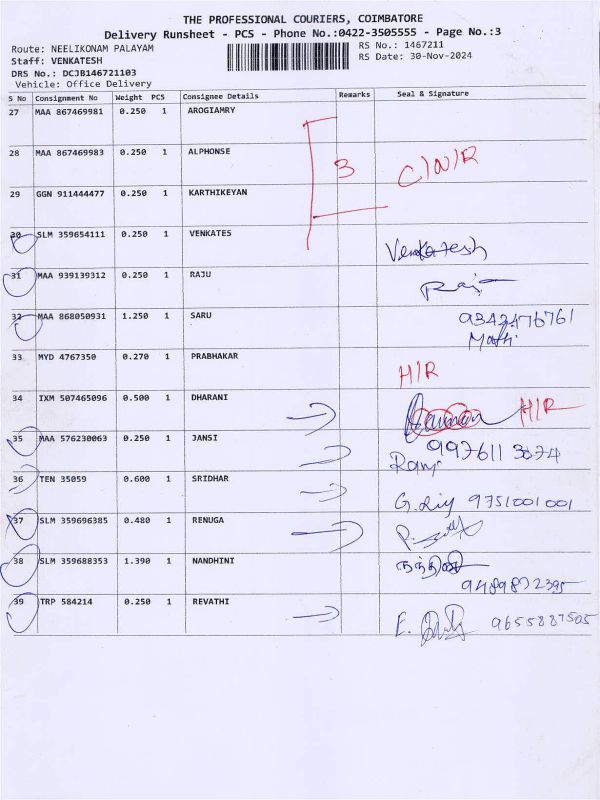 THE PROFESSIONAL COURIERS, COIMBATORE
Delivery Runsheet - PCS - Phone No.:0422-3505555 - Page No.:3
Route: NEELIKONAM PALAYAM
RS No.: 1467211
Staff: VENKATESH
RS Date: 30-Nov-2024
DRS No.: DCJB146721103
Vehicle: Office Delivery
S No Consignment No Weight PCS Consignee Details Remarks Seal & Signature
27 MAA 867469981 0.250 1 AROGIAMRY
28 MAA 867469983 0.250 1 ALPHONSE 3 C/N/R
29 GGN 911444477 0.250 1 KARTHIKEYAN
30 SLM 359654111 0.250 1 VENKATES Venkatesh
31 MAA 939139312 0.250 1 RAJU Raj
32 MAA 868050931 1.250 1 SARU
Mathi
33 MYD 4767350 0.270 1 PRABHAKAR H/R
34 IXM 507465096 0.500 1 DHARANI H/R
35 MAA 576230063 0.250 1 JANSI
36 TEN 35059 0.600 1 SRIDHAR 9751001001
37 SLM 359696385 0.480 1 RENUGA
38 SLM 359688353 1.390 1 NANDHINI நந்தினி
39 TRP 584214 0.250 1 REVATHI E. 9655887505